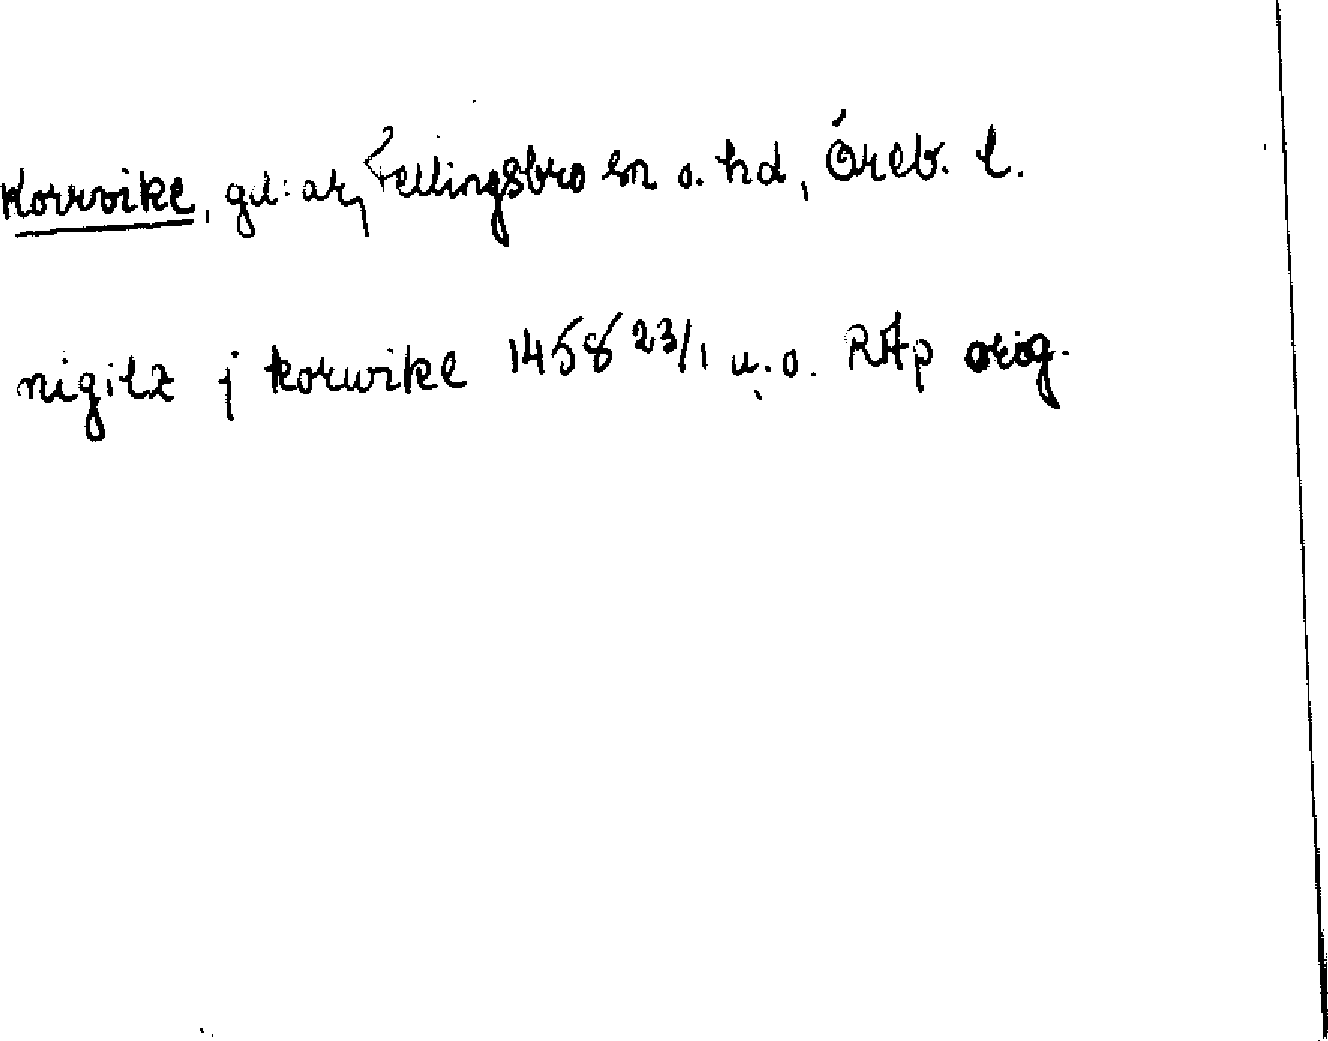 Korrvike, gd:ar, Fellingsbro sn o. hd, Öreb. l.
nigilz j korwike 1458 23/1 u.o. RAp orig.